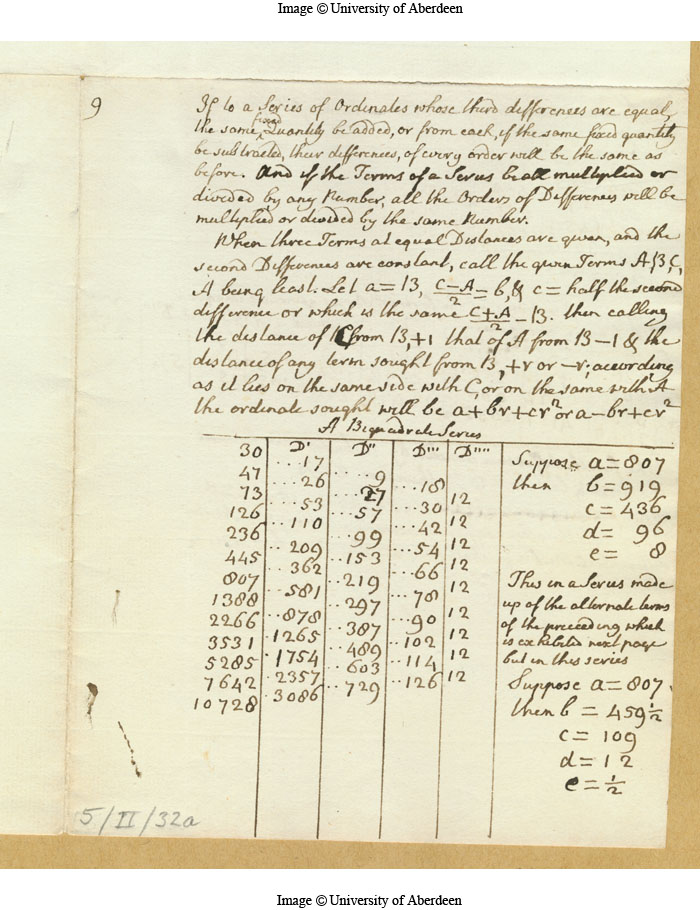 Image © University of Aberdeen
9
If to a Series of Ordinates whose third differences are equal,
the same fixed Quantity be added, or from each, if the same fixed quantity
be subtracted, their differences, of every order will be the same as
before. And if the Terms of a Series be all multiplied or
divided by any Number, all the Orders of Differences will be
multiplied or divided by the same Number.
When three Terms at equal Distances are given, and the
second Differences are constant, call the given Terms A, B, C,
A being least. Let a = B, C-A/2 = b, & c = half the second
difference or which is the same C+A/2 - B. then calling
the distance of C from B, +1 that of A from B -1 & the
distance of any term sought from B, +r or -r; according
as it lies on the same side with C, or on the same with A
the ordinate sought will be a+br+cr² or a-br+cr²
A Biquadrate Series
D' D'' D''' D''''
30
17
47 9
26 18
73 27 12
53 30
126 57 12
110 42
236 99 12
209 54
445 153 12
362 66
807 219 12
581 78
1388 297 12
878 90
2266 387 12
1265 102
3531 489 12
1754 114
5285 603 12
2357 126
7642 729
3086
10728
Suppose a = 807
then b = 919
c = 436
d = 96
e = 8
This in a Series made
up of the alternate terms
of the preceeding which
is exhibited next page
but in this series
Suppose a = 807
then b = 459½
c = 109
d = 12
e = ½
5/II/32a
Image © University of Aberdeen